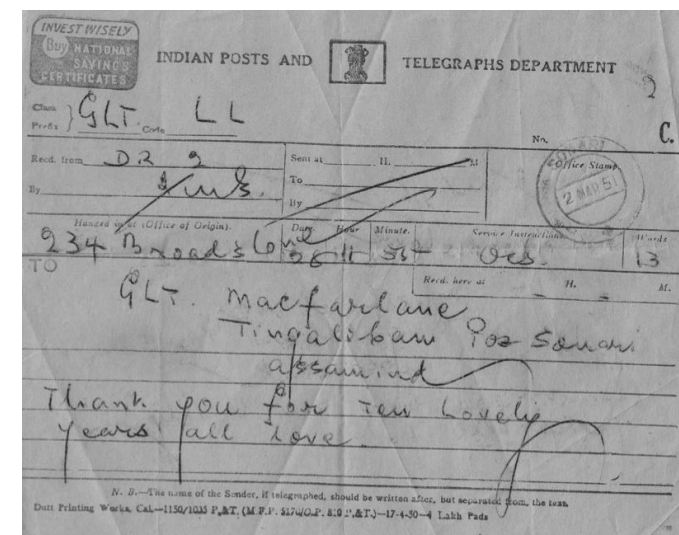 INVEST WISELY
Buy NATIONAL
SAVINGS
CERTIFICATES
INDIAN POSTS AND TELEGRAPHS DEPARTMENT
2
Class
Prefix } GLT. Code LL
No. C.
Recd. from DR 2
Sent at H. M
Office Stamp
To
By
By
2 MAR 51
Handed in at (Office of Origin). Date Hour Minute. Service Instructions Words
234 Broads Lone 28 H 51 Ocs. 13
TO
Recd. here at H. M.
GLT. Macfarlane
Tingalibam Poz Sonari
assamind
Thank you for Ten Lovely
years all love.
N. B.—The name of the Sender, if telegraphed, should be written after, but separated from, the text.
Dutt Printing Works, Cal.—1150/1035 P.&T. (M.F.P. 517G/O.P. 810 P.&T.)—17-4-50—4 Lakh Pads